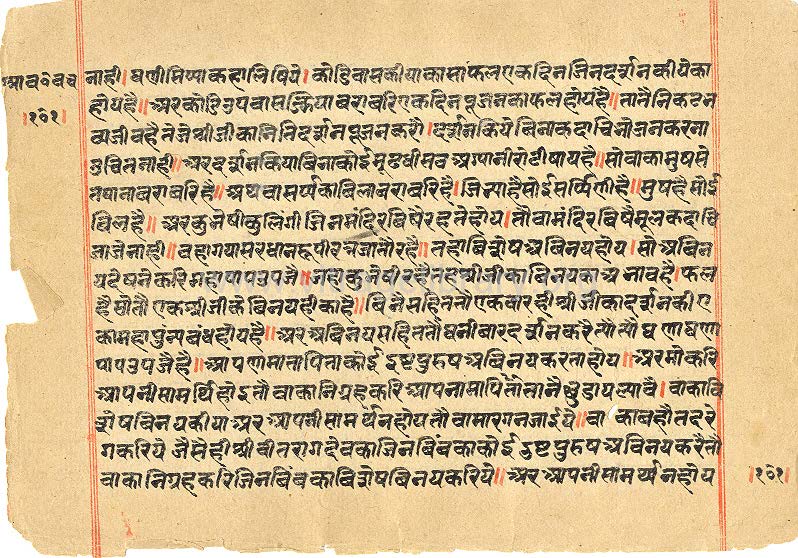 नाही। घणी मिथ्या कहा लिषिये। कोटि वास कीया का सा फल एक दिन जिनदर्शन कीये का
होय है॥ अर कोटि उपवास सक्रिया बराबरि एक दिन पूजन का फल होय है॥ तातै निकट भ
व्य जीव है ते जे श्रीजी का निति दर्शन पूजन करौ। दर्शन किये बिना कदाचि भोजन करना
उचित नाही॥ अर दर्शन किया बिना कोई मूढधी सब आपानी रोटी षाय है॥ सो वाका मुष से
तषाना बराबरि है॥ अथवा सर्प्प का बिला बराबरि है। जिभ्या है सोई सर्प्पिणी है॥ मुष है सोई
बिल है॥ अर कुभेषी कुलिंगी जिनमंदिर बिषै रहते होय। तौ वा मंदिर बिषै भूलि कदाचि
जाजे नाही॥ वहा गया सरधान रूपी रत्न जातो रहै॥ तहा विशेष अबिनय होय। सो अबिन
य देषने करि महापाप उपजै॥ जहा कुभेषी रहै तहा श्रीजी का बिनय का अभाव है। फल
है सो तौ एक श्रीजी के बिनय ही का है॥ बिनै सहित तौ एक बार ही श्रीजी का दर्शन कीए
का महापुन्य बंध होय है॥ अर अबिनय सहित तौ घनी बार दर्शन करै त्यौ त्यौ घणा घणा
पाप उपजै है॥ आपणा माता पिता का कोई दुष्ट पुरुष अबिनय करता होय॥ अर मो करि
आपनी सामर्थि होइ तौ वाका निग्रह करि आपना माता पिता नै छुडाय ल्यावै। वाका वि
शेष बिनय कीया अर आपनी सामर्थ न होय तौ वा मारग न जाईये॥ वाका बहौत दरे
ग करिये जैसे ही श्रीवीतराग देव का जिनबिंब का कोई दुष्ट पुरुष अबिनय करै तौ
वाका निग्रह करि जिनबिंब का विशेष बिनय करिये॥ अर आपनी सामर्थ्य न होय
।१०१।
।१०१।